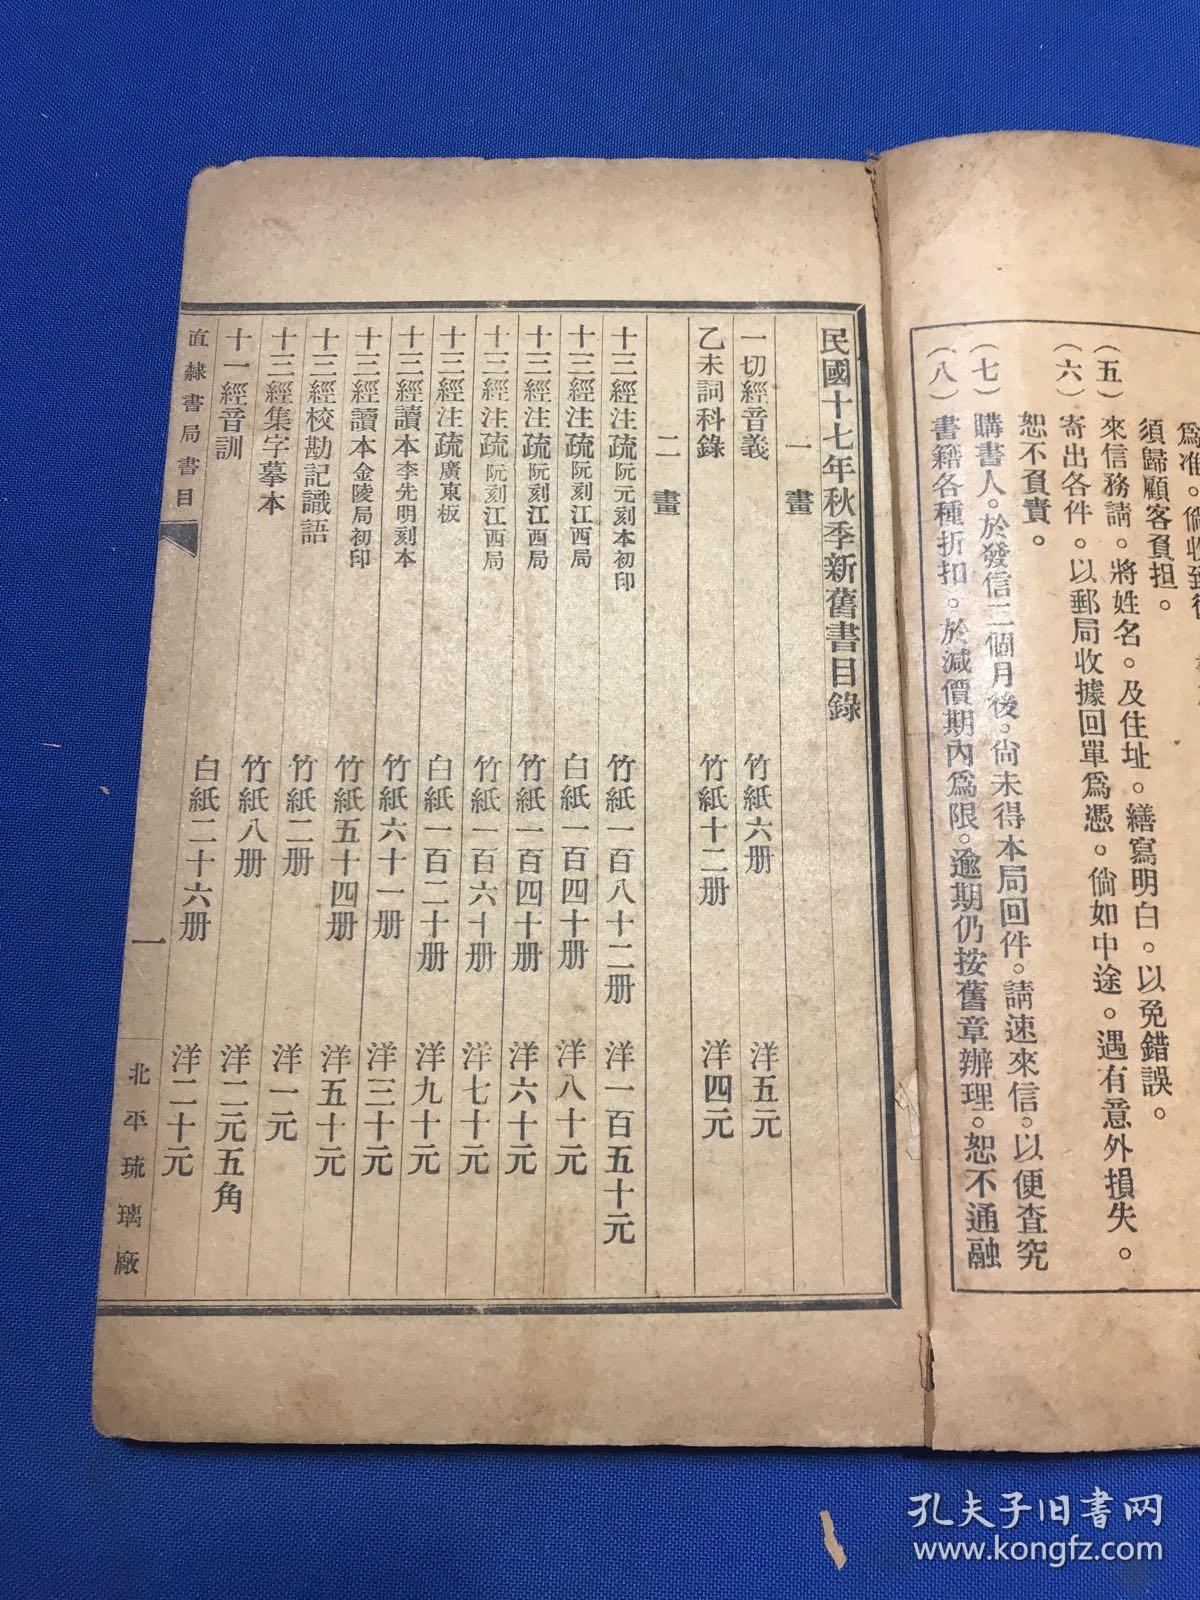 爲准。倘收到後
須歸顧客負担。
（五）來信務請。將姓名。及住址。繕寫明白。以免錯誤。
（六）寄出各件。以郵局收據回單爲憑。倘如中途。遇有意外損失。
恕不負責。
（七）購書人。於發信三個月後。尙未得本局回件。請速來信。以便査究
（八）書籍各種折扣。於減價期內爲限。逾期仍按舊章辦理。恕不通融
民國十七年秋季新舊書目錄
一畫
一切經音義 竹紙六册 洋五元
乙未詞科錄 竹紙十二册 洋四元
二畫
十三經注疏阮元刻本初印 竹紙一百八十二册 洋一百五十元
十三經注疏阮刻江西局 白紙一百四十册 洋八十元
十三經注疏阮刻江西局 竹紙一百四十册 洋六十元
十三經注疏阮刻江西局 竹紙一百六十册 洋七十元
十三經注疏廣東板 白紙一百二十册 洋九十元
十三經讀本李先明刻本 竹紙六十一册 洋三十元
十三經讀本金陵局初印 竹紙五十四册 洋五十元
十三經校勘記識語 竹紙二册 洋一元
十三經集字摹本 竹紙八册 洋二元五角
十一經音訓 白紙二十六册 洋二十元
直隸書局書目 一 北平琉璃廠
孔夫子旧书网
www.kongfz.com